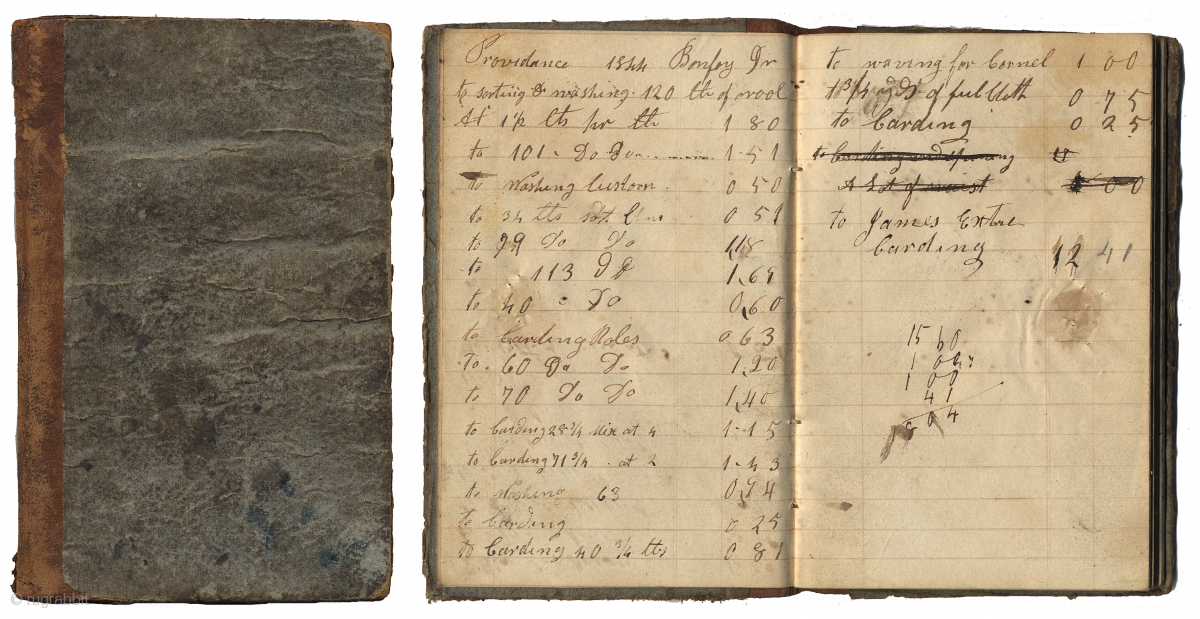 Providance 1844 Bonfoy Dr
to sorting & washing 120 lb of wool
At 1½ cts pr lb 1 80
to 101 - Do Do 1-51
to Washing Custom 0 50
to 34 lbs 0 51
to 79 Do Do 1,18
to 113 Do 1,69
to 40 - Do 0,60
to Carding Roles 0 63
To 60 Do Do 1,20
to 70 Do Do 1,40
to Carding 28 3/4 Mix at 4 1-15
to Carding 71 3/4 at 2 1-43
to Washing 63 0,94
to Carding 0 25
to Carding 40 3/4 lbs 0 81
to waving for Cornel 1 00
to 3/4 yds of full Cloth 0 75
to Carding 0 25
to Carding and Spinning
A Lot of waist 00
to James Extre
Carding 12 41
15 60
1 00
1 00
41
04
© rugrabbit